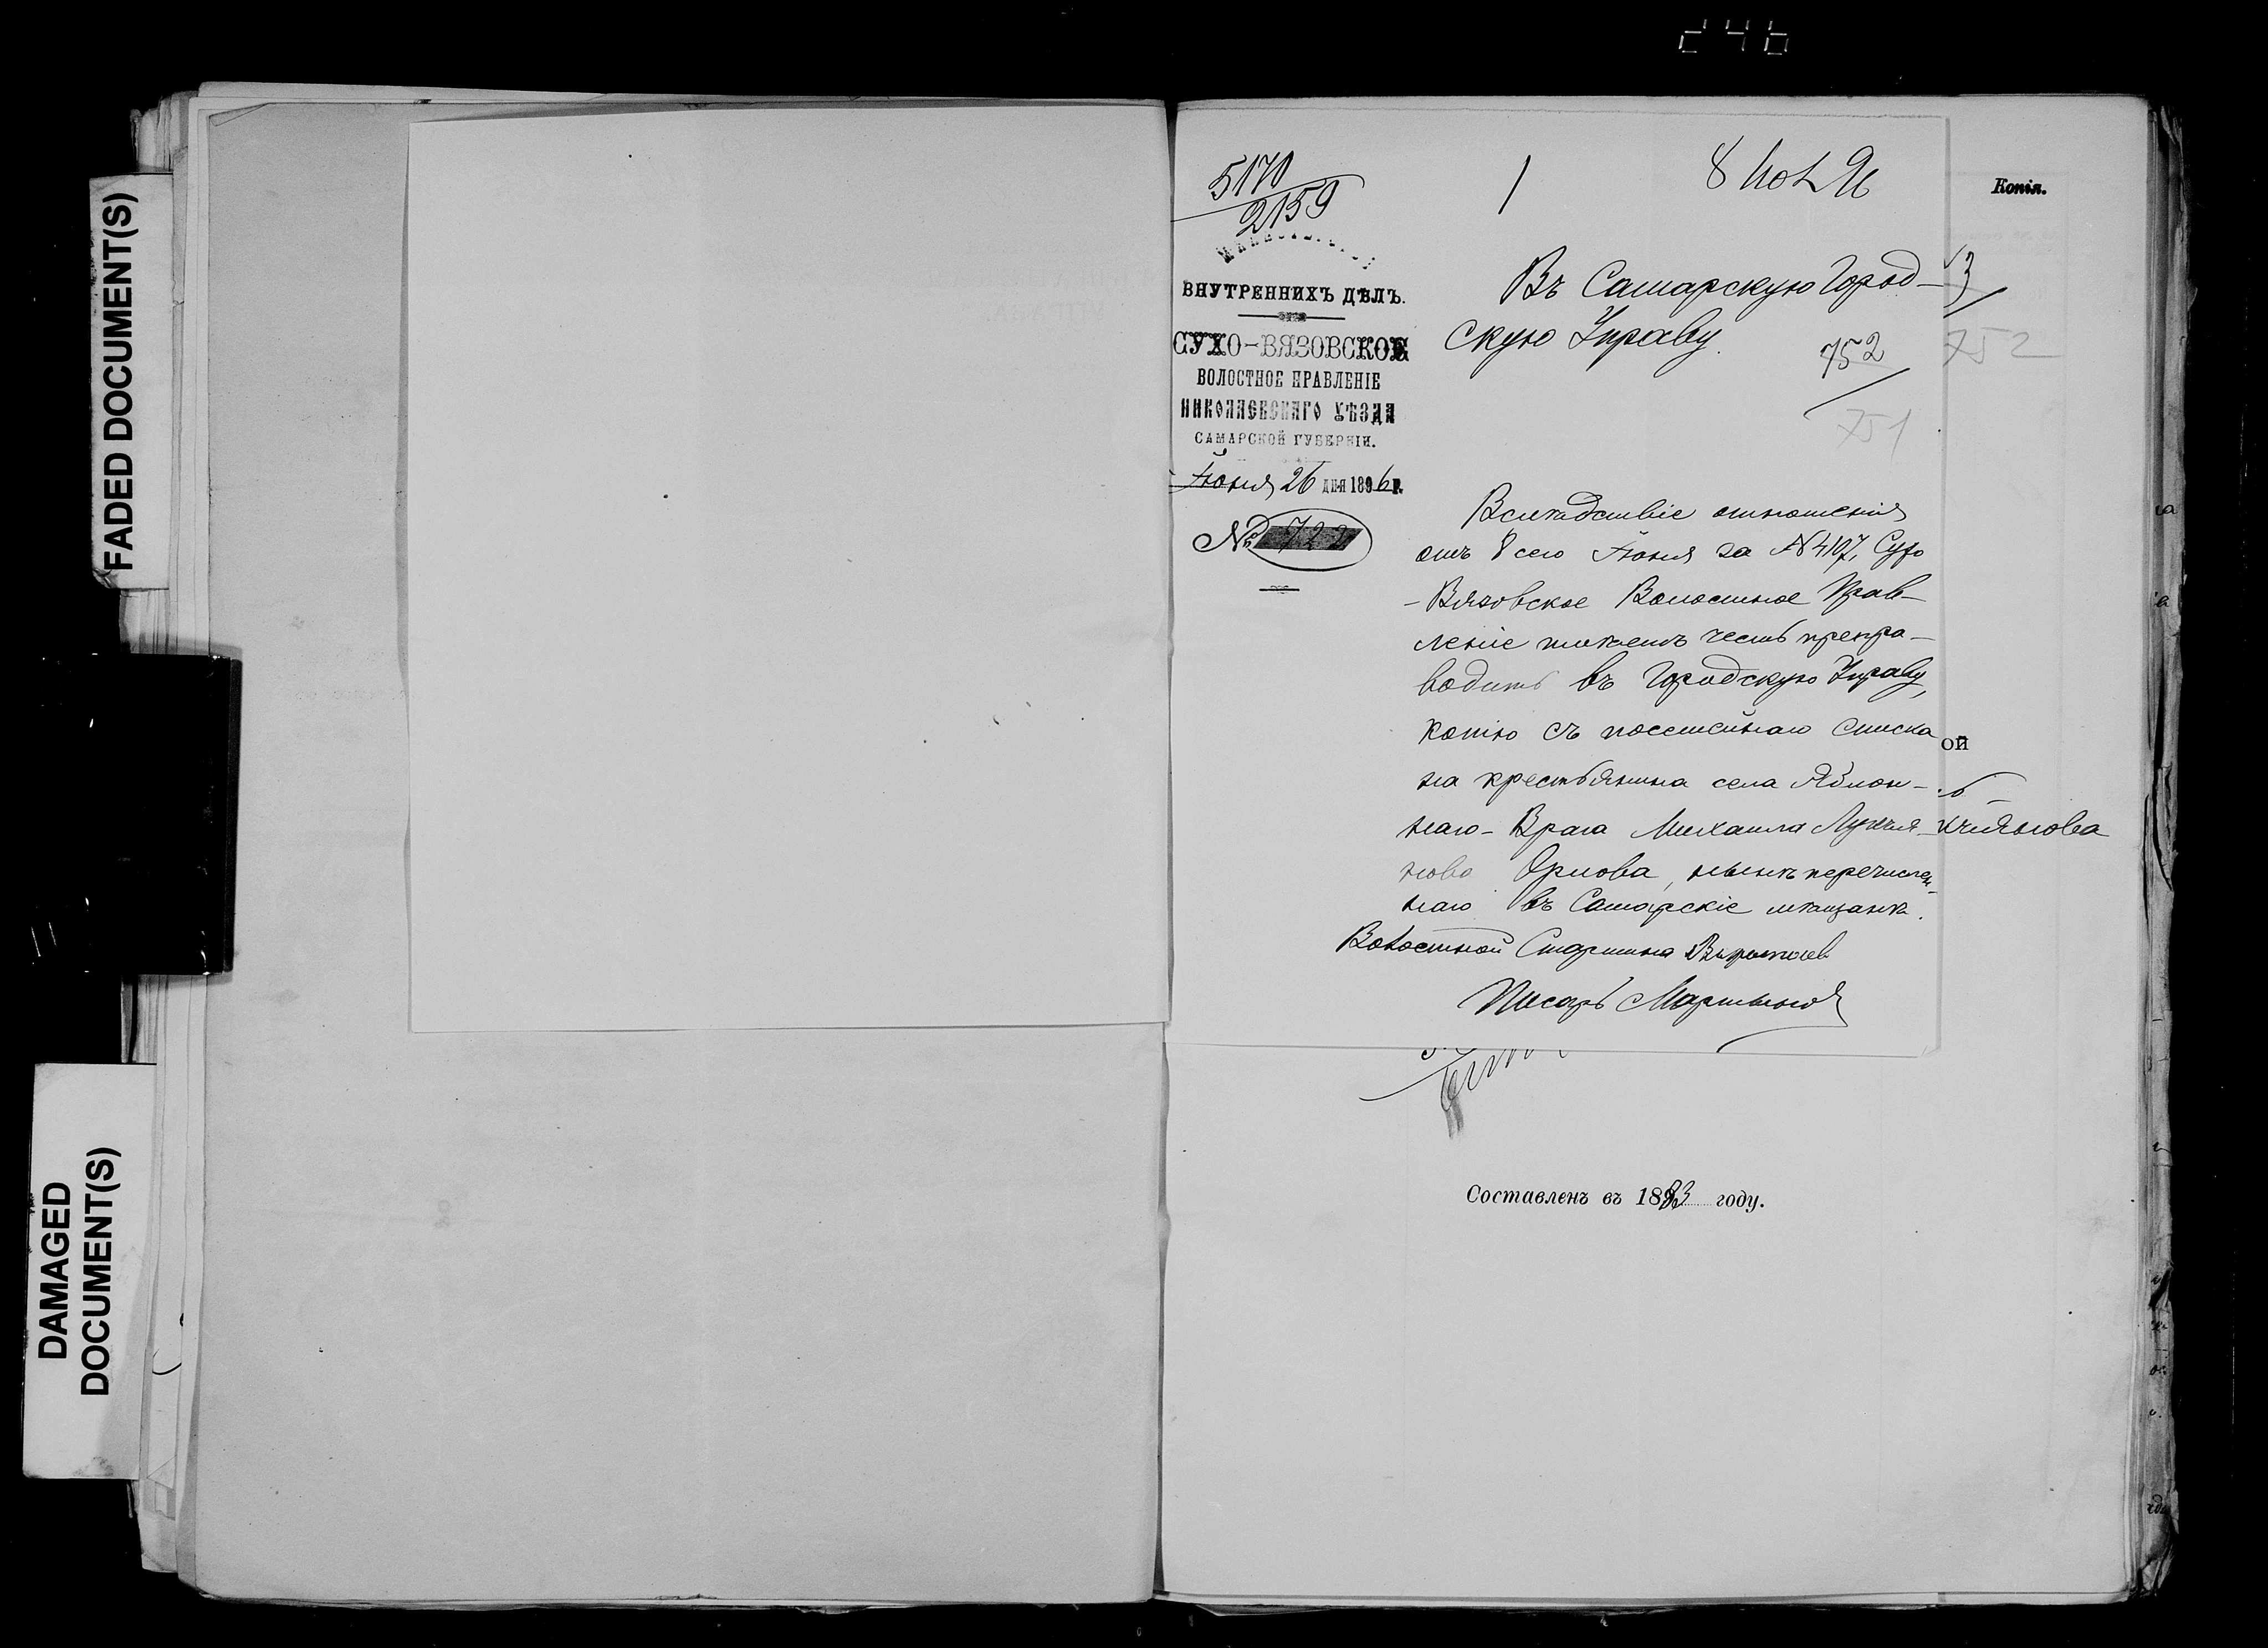 d46
FADED DOCUMENT(S)
DAMAGED
DOCUMENT(S)
5170
2159
1
8 Іюл 96
Копія.
ВНУТРЕННИХЪ ДѢЛЪ.
СУХО-ВЯЗОВСКОЕ
ВОЛОСТНОЕ ПРАВЛЕНІЕ
НИКОЛАЕВСКАГО УѢЗДА
САМАРСКОЙ ГУБЕРНІИ.
Іюня 26 дня 1896 г.
№ 722
Въ Самарскую Город-
скую Управу.
3
752
752
751
Вслѣдствіе отношенія
отъ 8 сего Іюня за № 4107, Сухо
-Вязовское Волостное Прав-
леніе имѣетъ честь препро-
водить въ Городскую Управу,
копію съ посемейнаго списка
на крестьянина села Яблон-
наго-Врага Михаила Лукья-
нова Орлова, нынѣ перечислен-
наго въ Самарскіе мѣщане.
Волостной Старшина
Писарь Мартынов
ой
Составленъ въ 1883 году.